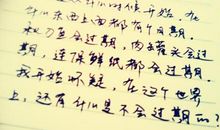 从什么时候开始，在
什么东西上面都有个日期，
秋刀鱼会过期，肉酱罐头会过
期，连保鲜纸都会过期，
我开始怀疑，在这个世界
上，还有什么是不会过期的？